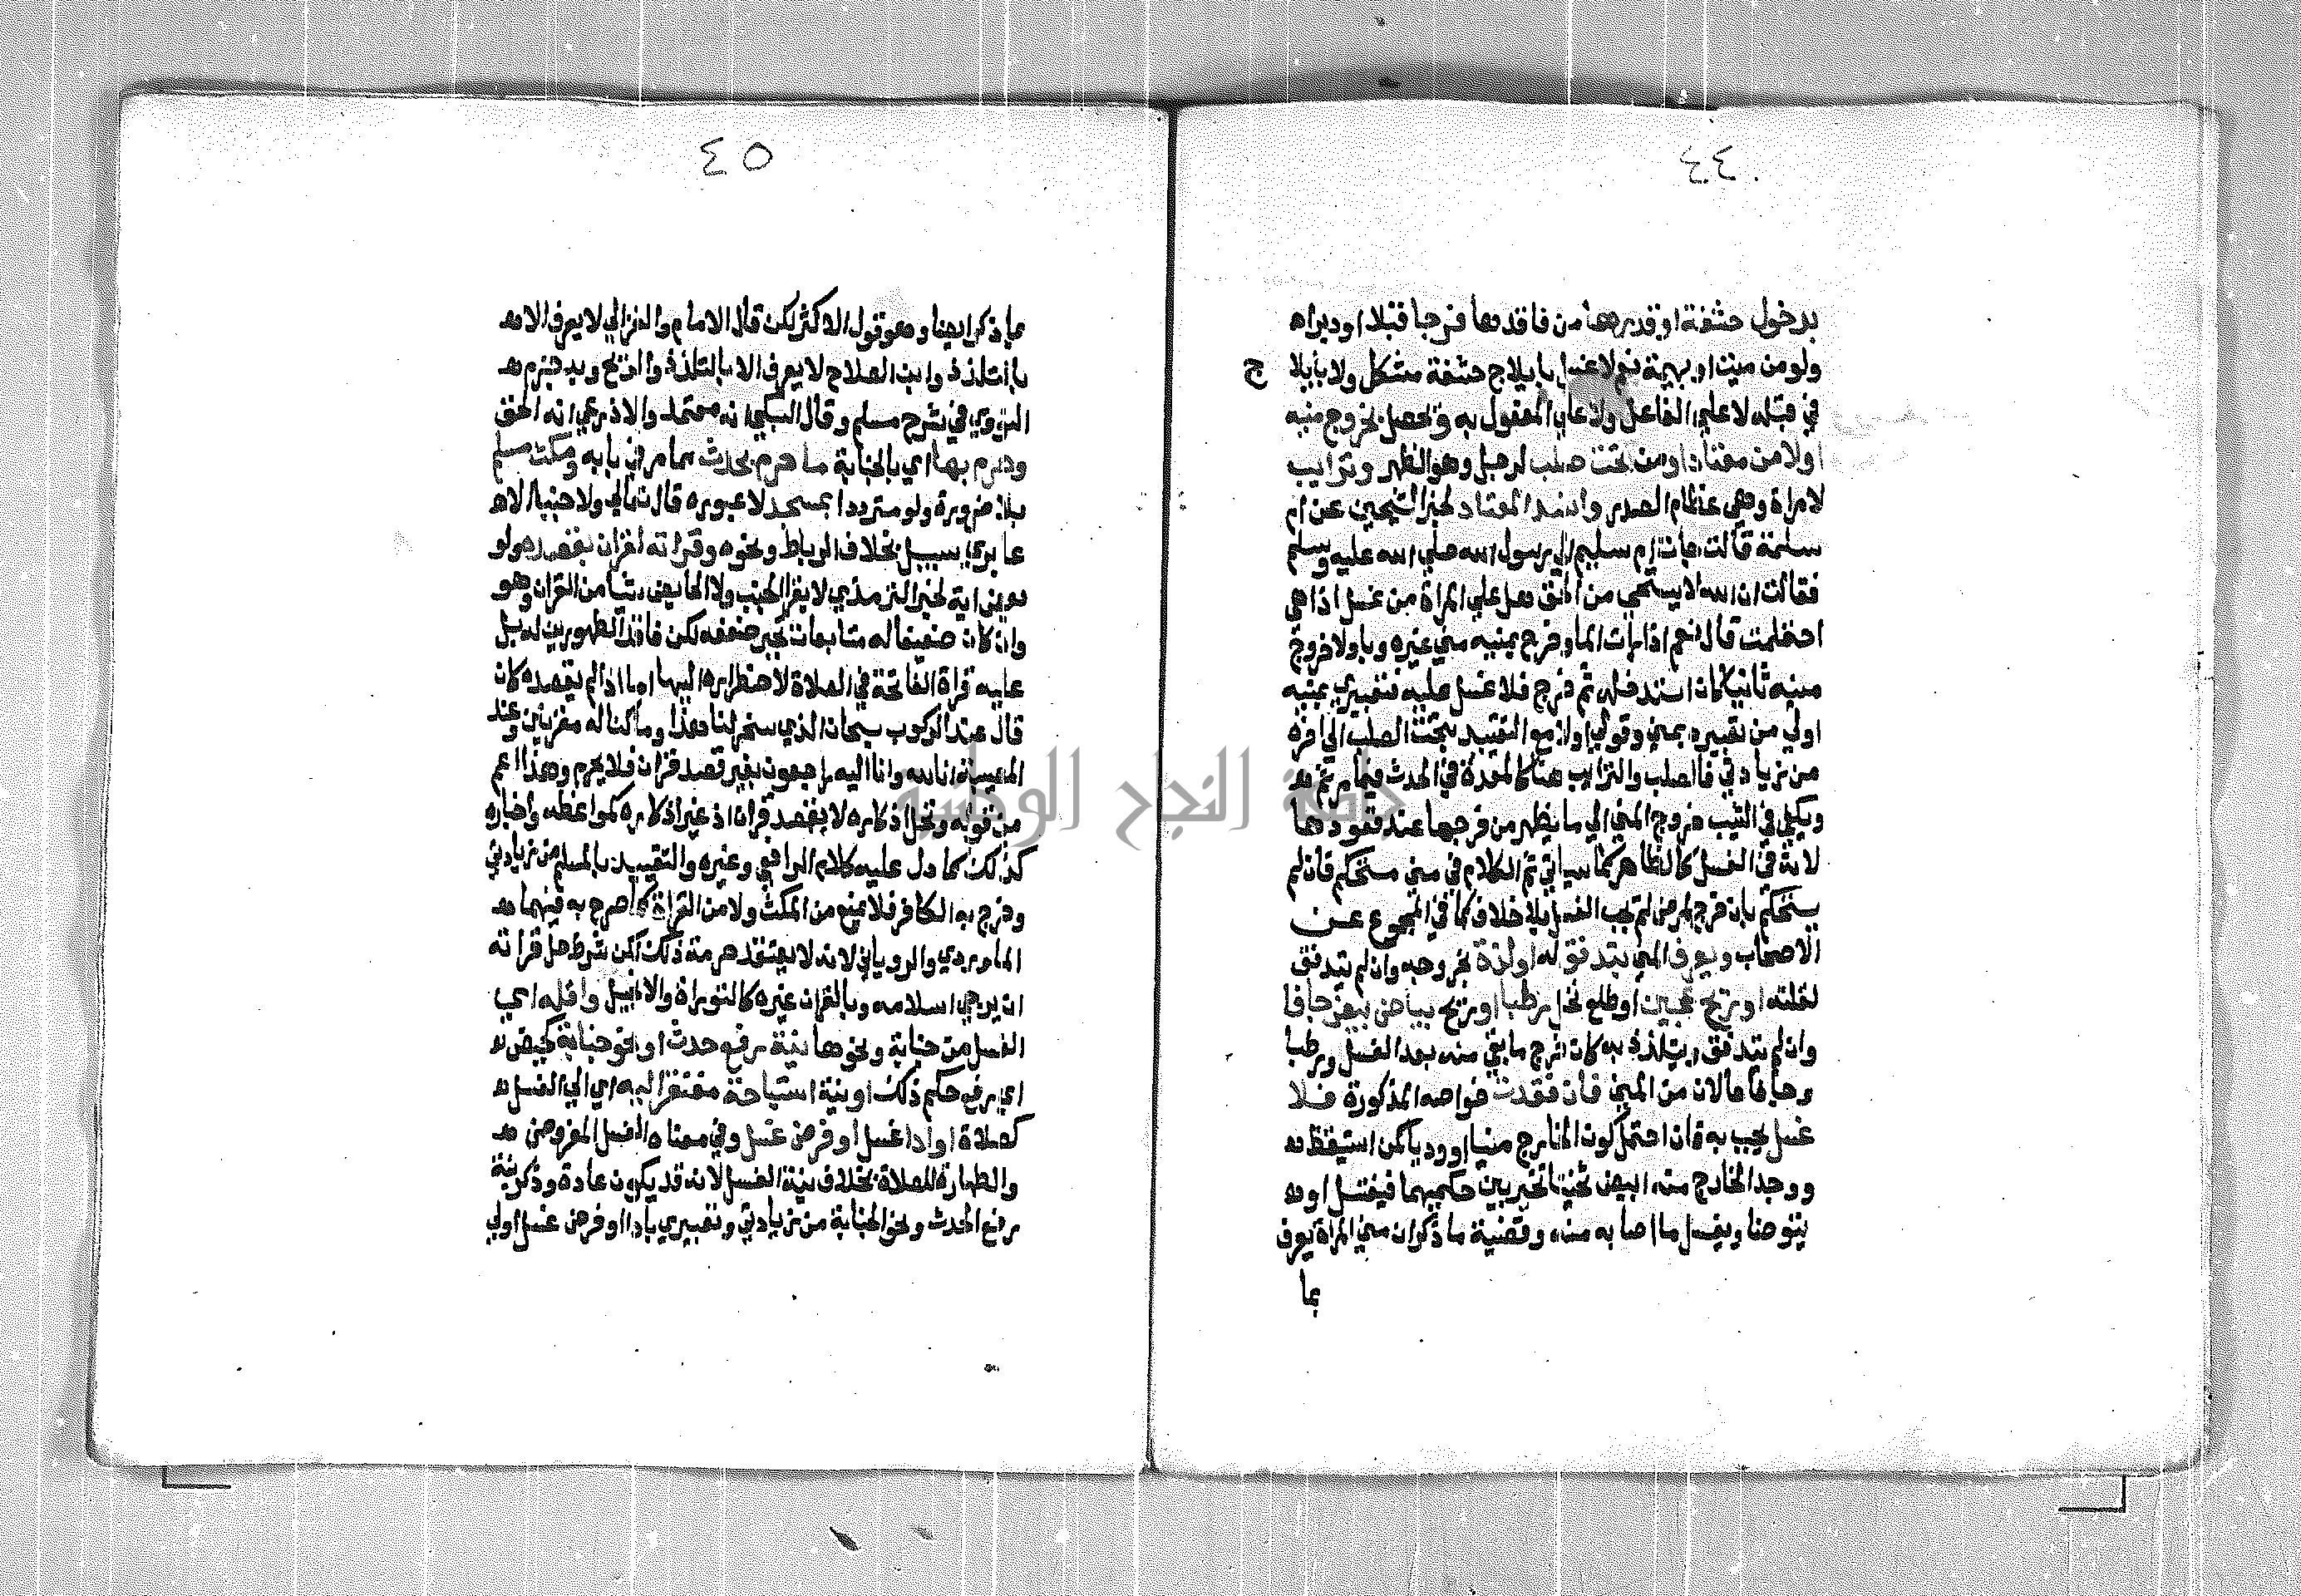 ٤٤
بدخول حشفة او قدرها من فاقدها فرجا قبلا او دبرا ه
ولو من ميت او بهيمة نعم لا غسل بايلاج حشفة مشكل ولا بايلا
ج
في قبله لا علي الفاعل ولا علي المفعول به وتحصل بخروج منيه
اولا من معتاد او من تحت صلب لرجل وهو الظهر وترايب
لامراة وهي عظام الصدر وانسد المعتاد لخبر الشيخين عن ام
سلمة قالت جات ام سليم الي رسول الله صلي الله عليه وسلم
فقالت ان الله لا يستحي من الحق هل علي المراة من غسل اذا هي
احتلمت قال نعم اذا رات الما وخرج بمنيه مني غيره وباولا خروج
منيه ثانيا كان استدخله ثم خرج فلا غسل عليه فتعبيري بمنيه
اولي من تعبيره بمني وقولي اولا مع التقييد بتحت الصلب الي اخره
من زيادتي فالصلب والترايب هنا كالمعدة في الحدث فيما مر ثم ه
ويكفي في الثيب خروج المني الي ما يظهر من فرجها عند قعودها
لانه في الغسل كالظاهر كما سياتي ثم الكلام في مني مستحكم فان لم
يستحكم بان خرج لمرض لم يجب الغسل بلا خلاف كما في المجموع عن
الاصحاب ويعرف المني بتدفق له او لذة بخروجه وان لم يتدفق
لقلته او بريح عجين او طلع نخل رطبا او بريح بياض بيض جافا
وان لم يتدفق ويتلذذ به كان خرج ما بقي منه بعد الغسل ورطبا
وجافا حالان من المني فان فقدت خواصه المذكورة فلا
غسل يجب به فان احتمل كون الخارج منيا او وديا كمن استيقظ ه
ووجد الخارج منه ابيض ثخينا تخير بين حكميهما فيغتسل او ه
يتوضا ويغسل ما اصابه منه وقضية ما ذكر ان مني المراة يعرف
بما
٤٥
بما ذكر ايضا وهو قول الاكثر لكن قال الامام والغزالي لا يعرف الا ه
بالتلذذ وابن الصلاح لا يعرف الا بالتلذذ والريح وبه جزم ه
النووي في شرح مسلم وقال السبكي انه معتمد والاذرعي انه الحق
وحرم بها اي بالجنابة ما حرم بحدث مما مر في بابه ومكث مسلم
بلا ضرورة ولو مترددا بمسجد لا عبوره قال تعالي ولا جنبا الا ه
عابري سبيل بخلاف الرباط ونحوه وقراته لقران بقصده ولو
بعض اية لخبر الترمذي لا يقرا الجنب ولا الحايض شيا من القران وهو
وان كان ضعيفا له متابعات تجبر ضعفه لكن فاقد الطهورين له بل
عليه قراة الفاتحة في الصلاة لاضطراره اليها اما اذا لم يقصده كان
قال عند الركوب سبحان الذي سخر لنا هذا وما كنا له مقرنين وعند
المصيبة انا لله وانا اليه راجعون بغير قصد قران فلا يحرم وهذا اعم
من قوله وتحل اذكاره لا بقصد قران اذ غير اذكاره كمواعظه واخباره
كذلك كما دل عليه كلام الرافعي وغيره والتقييد بالمسلم من زيادتي
وخرج به الكافر فلا يمنع من المكث ولا من القراة كما صرح به فيهما ه
الماوردي والروياني لانه لا يعتقد حرمة ذلك لكن شرط حل قراته
ان يرجي اسلامه وبالقران غيره كالتوراة والانجيل واقله اي
الغسل من جنابة ونحوها نية رفع حدث او نحو جنابة كحيض ه
اي رفع حكم ذلك او نية استباحة مفتقر اليه اي الي الغسل ه
كصلاة او ادا غسل او فرض غسل وفي معناه الغسل المفروض ه
والطهارة للصلاة بخلاف نية الغسل لانه قد يكون عادة وذكر نية
رفع الحدث ونحو الجنابة من زيادتي وتعبيري بادا او فرض غسل اولي
جامعة النجاح الوطنية